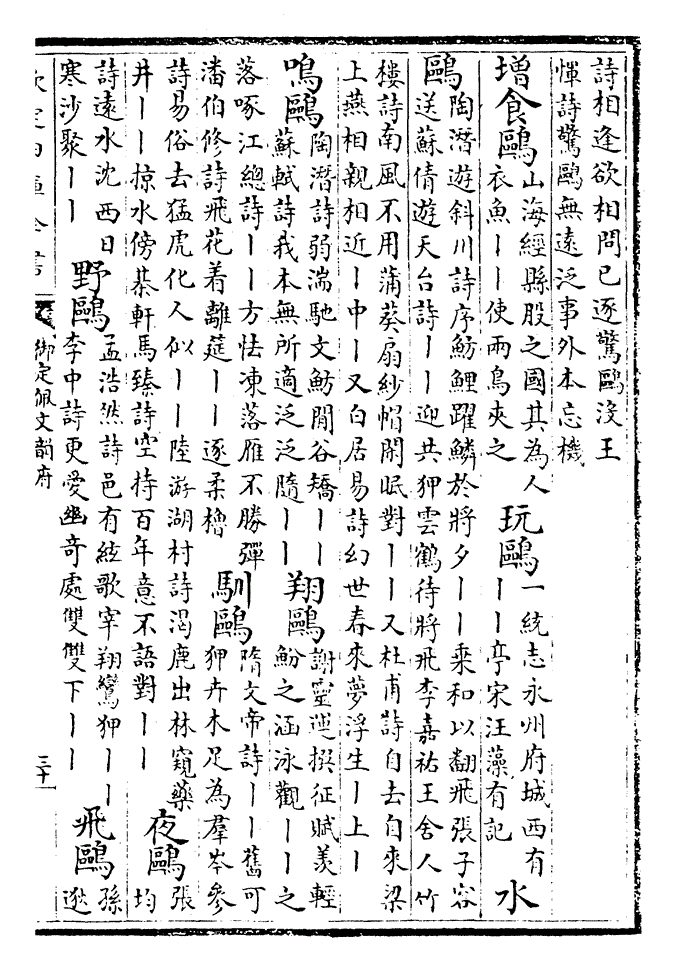 詩相逢欲相問已逐驚鷗沒王
惲詩驚鷗無遠泛事外本忘機
增食鷗
山海經縣股之國其為人
衣魚丨丨使兩鳥夾之
玩鷗
一統志永州府城西有
丨丨亭宋汪藻有記
水
鷗
陶潛遊斜川詩序魴鯉躍鱗於將夕丨丨乘和以翻飛張子容
送蘇倩遊天台詩丨丨迎共狎雲鶴待將飛李嘉祐王舍人竹
樓詩南風不用蒲葵扇紗帽閒眠對丨丨又杜甫詩自去自來梁
上燕相親相近丨中丨又白居易詩幻世春來夢浮生丨上丨
鳴鷗
陶潛詩弱湍馳文魴閒谷矯丨丨
蘇軾詩我本無所適泛泛隨丨丨
翔鷗
謝靈運撰征賦羨輕
魵之涵泳觀丨丨之
落啄江總詩丨丨方怯凍落雁不勝彈
潘伯修詩飛花着離筵丨丨逐柔櫓
馴鷗
隋文帝詩丨丨舊可
狎卉木足為羣岑參
詩易俗去猛虎化人似丨丨陸游湖村詩渴鹿出林窺藥
井丨丨掠水傍棊軒馬臻詩空持百年意不語對丨丨
夜鷗
張
均
詩遠水沈西日
寒沙聚丨丨
野鷗
孟浩然詩邑有絃歌宰翔鸞狎丨丨
李中詩更愛幽奇處雙雙下丨丨
飛鷗
孫
逖
欽定四庫全書
御定佩文韻府